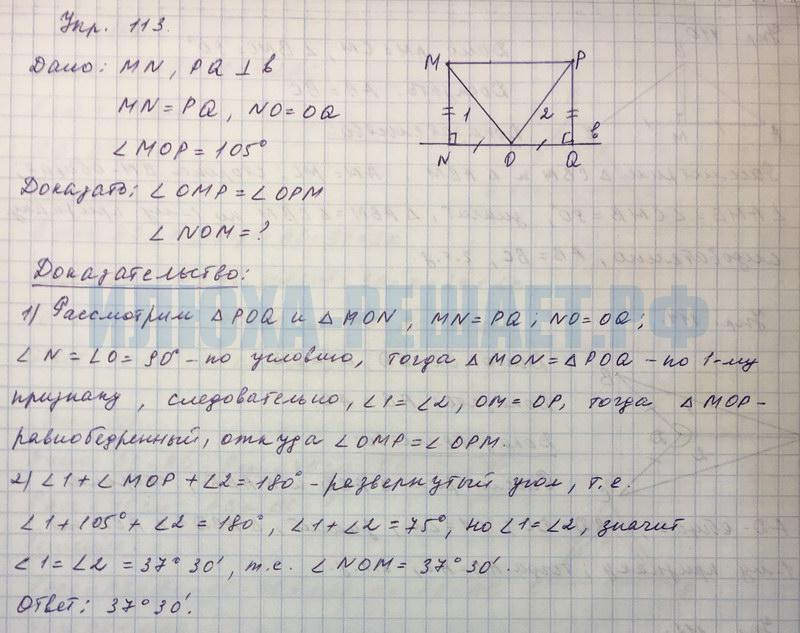 Упр. 113.
Дано: MN, PQ ⊥ b
MN = PQ, NO = OQ
∠ MOP = 105°
Доказать: ∠ OMP = ∠ OPM
∠ NOM = ?
M P
1 2 b
N O Q
Доказательство:
1) Рассмотрим △ POQ и △ MON, MN = PQ; NO = OQ;
∠ N = ∠ O = 90° - по условию, тогда △ MON = △ POQ - по 1-му
признаку, следовательно, ∠1 = ∠2, OM = OP, тогда △ MOP -
равнобедренный, откуда ∠ OMP = ∠ OPM.
2) ∠1 + ∠ MOP + ∠2 = 180° - развернутый угол, т.е.
∠1 + 105° + ∠2 = 180°, ∠1 + ∠2 = 75°, но ∠1 = ∠2, значит
∠1 = ∠2 = 37° 30', т.е. ∠ NOM = 37° 30'.
Ответ: 37° 30'.
ИЛЮХА-РЕШАЕТ.РФ